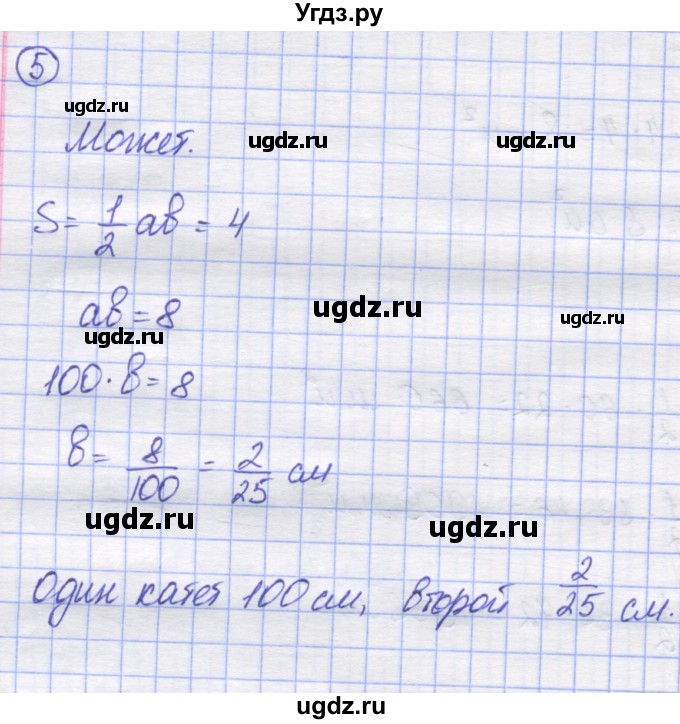 Угдз.ру
5
ugdz.ru
Может.
ugdz.ru
ugdz.ru
S = 1/2 ab = 4
ab = 8
ugdz.ru
ugdz.ru
ugdz.ru
100 · b = 8
b = 8/100 = 2/25 см
ugdz.ru
ugdz.ru
Один катет 100 см, второй 2/25 см.
ugdz.ru